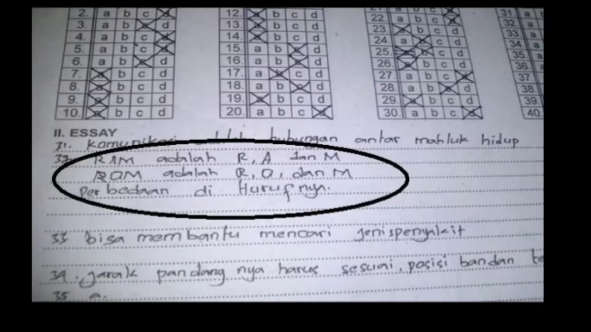 2. a b c d 12. a b c d 22. a b c d 31. a
3. a b c d 13. a b c d 23. b c d 32. a
4. a b c d 14. a b c d 24. a c d 33.
5. a b c d 15. a b d 25. b c d 34.
6. a b d 16. a b d 26. b c d 35.
7. b c d 17. a c d 27. a b c 36.
8. b c d 18. a b d 28. a b d 37.
9. b c d 19. b c d 29. b c d 38.
10. b c d 20. a b c 30. a b c 39.
40.
II. ESSAY
31. komunikasi adalah hubungan antar mahluk hidup
32. RAM adalah R, A dan M
ROM adalah R, O, dan M
Perbedaan di Hurufnya.
33 bisa membantu mencari jenispenyakit
34. jarak pandang nya harus sesuai, posisi bandan
35 a.